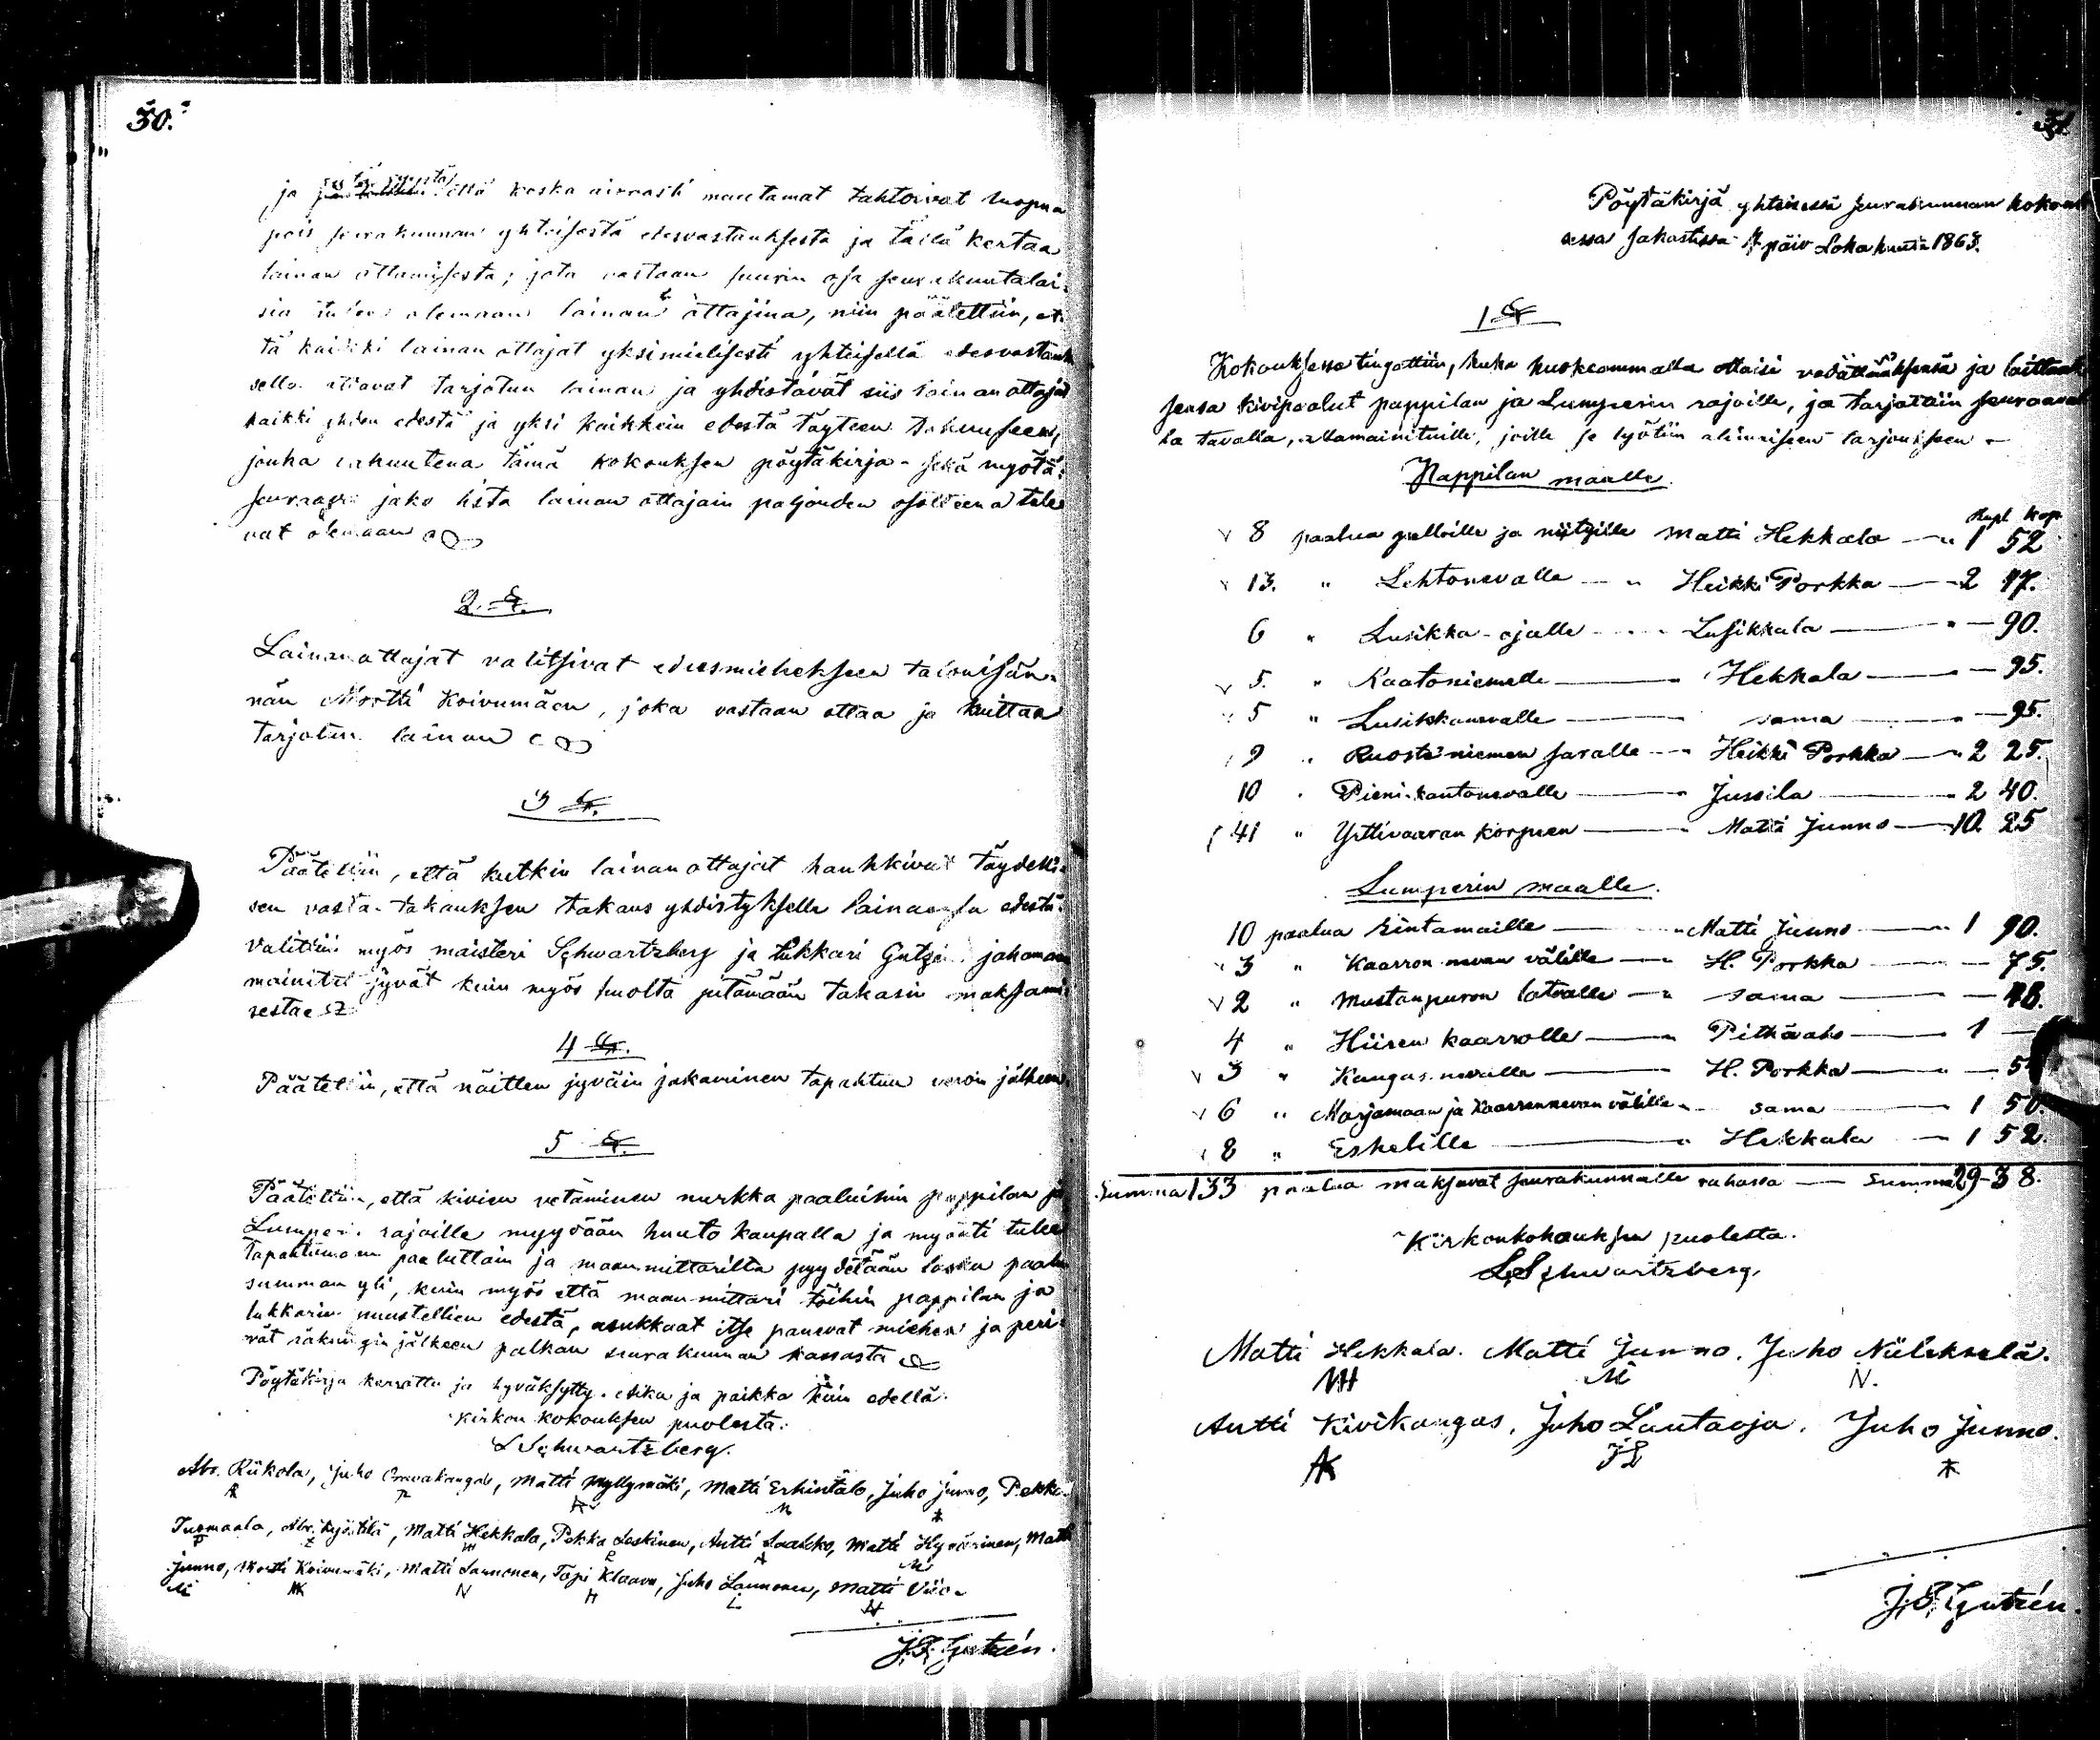 30.
ja että koska muutamat tahtoivat luopua
pois seurakunnan yhteisestä edesvastauksesta ja tällä kertaa
lainan ottamisesta; jota vastaan suurin osa seurakuntalai-
sia tulee olemaan lainan ottajina, niin päätettiin, et-
tä kaikki lainan ottajat yksimielisesti yhteisellä edesvastauk
sella ottavat tarjotun lainan ja yhdistävät siis lainan ottajat
kaikki yhden edestä ja yksi kaikkein edestä täyteen
jonka vakuutena tämä kokouksen pöytäkirja - sekä myötä-
seuraava jako lista lainan ottajain paljouden tule
vat olemaan
2. §.
Lainan ottajat valitsivat edusmiehekseen talonisän-
nän Martti Koivumäen, joka vastaan ottaa ja kuittaa
tarjotun lainan
3 §.
Päätettiin, että kutkin lainan ottajat hankkivat täydelli-
sen vasta-takauksen takaus yhdistykselle lainaansa edestä.
Valittiin myös maisteri Schwartzberg ja lukkari Gutzén jakamaan
mainitut jyvät kuin myös huolta pitämään takasin maksami
sesta
4 §.
Päätettiin, että näitten jyväin jakaminen tapahtuu veroin jälkeen.
5 §.
Päätettiin, että kivien vetäminen nurkka paaluihin pappilan ja
Lumperi rajoille myydään huuto kaupalla ja myynti tulee
tapahtumaan paaluttain ja maanmittarilta pyydetään lasku paalu
summan yli, kuin myös että maan-mittari töihin pappilan ja
lukkarin puustellien edestä, asukkaat itse panevat miehen ja peri-
vät räkningin jälkeen palkan seurakunnan kassasta
Pöytäkirja kerrattu ja hyväksytty. aika ja paikka kuin edellä.
Kirkon kokouksen puolesta:
L Schwartzberg.
Abr. Riikola, Juho Orravakangas, Matti Myllymäki, Matti Erkintalo, Juho Junno, Pekka
Tuomaala, Abr. Kyöttilä, Matti Hekkala, Pekka Leskinen, Antti Laakko, Matti Hyvärinen, Matti
Junno, Martti Koivumäki, Matti Lannonen, Tapi Klaavu, Juho Lannonen, Matti Viio
J.P. Gutzén.
31.
Pöytäkirja yhteisessä seurakunnan kokouk
sessa päiv Lokakuuta 1863.
1 §
Kokouksessa tingattiin, kuka huokeammalla ottaisi vedättääksensä ja laittaak
sensa kivipaalut pappilan ja Lumperin rajoille, ja tarjottiin seuraaval
la tavalla, allamainituille, joille se lyötiin alimaiseen tarjoukseen -
Pappilan maalle.
Rupl Kop
8 paalua pelloille ja niityille Matti Hekkala — 1 52
13. " Lehtonevalle — Heikki Porkka — 2 17.
6 " Lusikka-ojalle — Lusikkala — 90.
5. " Kaatoniemelle — Hekkala — 95.
5 " Lusikkanevalle — sama — 95.
9 " Ruosteniemen saralle — Heikki Porkka — 2 25.
10 " Pieni-kantonevalle — Jussila — 2 40.
41 " Yrttivaaran korpeen — Matti Junno — 10 25
Lumperin maalle.
10 paalua kintamaille — Matti Junno — 1 90.
3 " Kaarron nevan välille — H. Porkka — 75.
2 " Mustanpuron latvalle — sama —
4 " Hiiren kaarrolle — Pitkäaho — 1 —
3 " Kangas-nevalle — H. Porkka —
6 " Marjamaan ja Kaarronnevan välille — sama — 1 50.
8 " Eskelille — Hekkala — 1 52.
Summa 133 paalua maksavat seurakunnalle rahassa — Summa 29-38.
Kirkonkokouksen puolesta.
L Schwartzberg.
Matti Hekkala. Matti Junno. Juho Niilekselä.
MH M N.
Antti Kivikangas, Juho Lautaoja. Juho Junno.
AK JL
J.P. Gutzén.